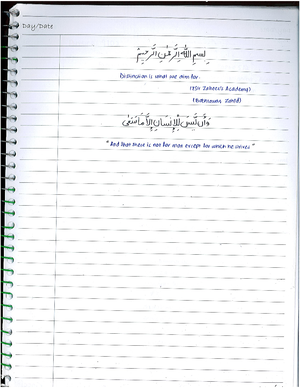 Day/Date
بِسْمِ اللهِ الرَّحْمٰنِ الرَّحِيْمِ
Distinction is what we aim for.
(Sir Zaheer's Academy)
Zahid)
وَأَنْ لَّيْسَ لِلْإِنْسَانِ إِلَّا مَا سَعٰى
"And that there is not for man except for which he strives"